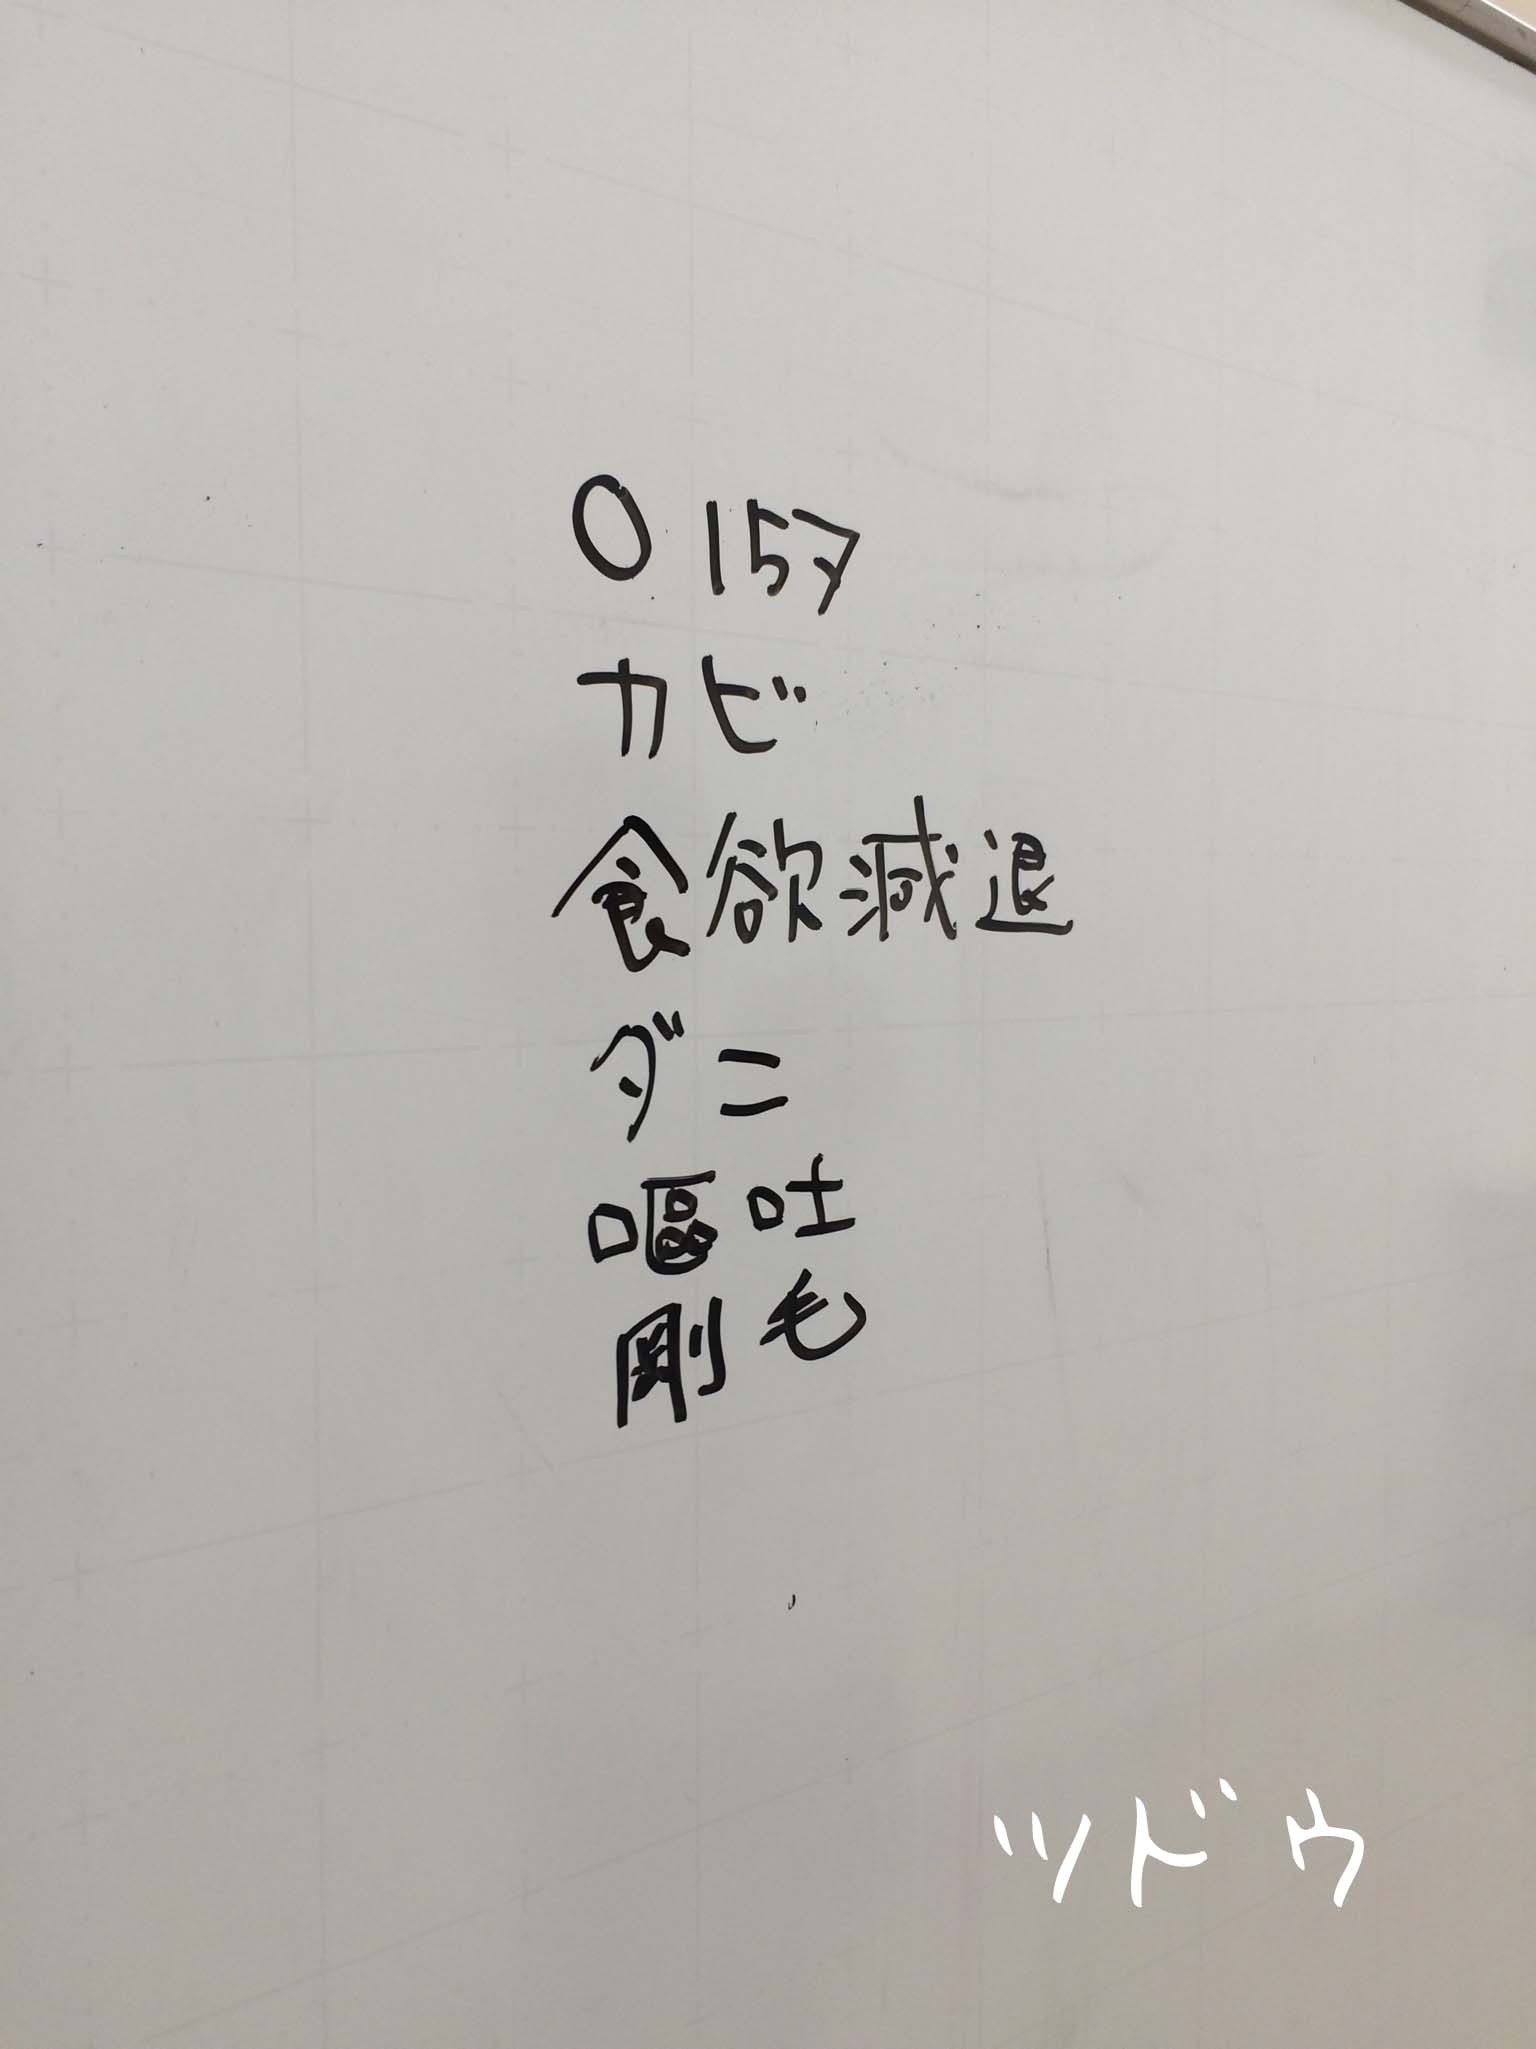 O157
カビ
食欲減退
ダニ
嘔吐
剛毛
ツドゥ